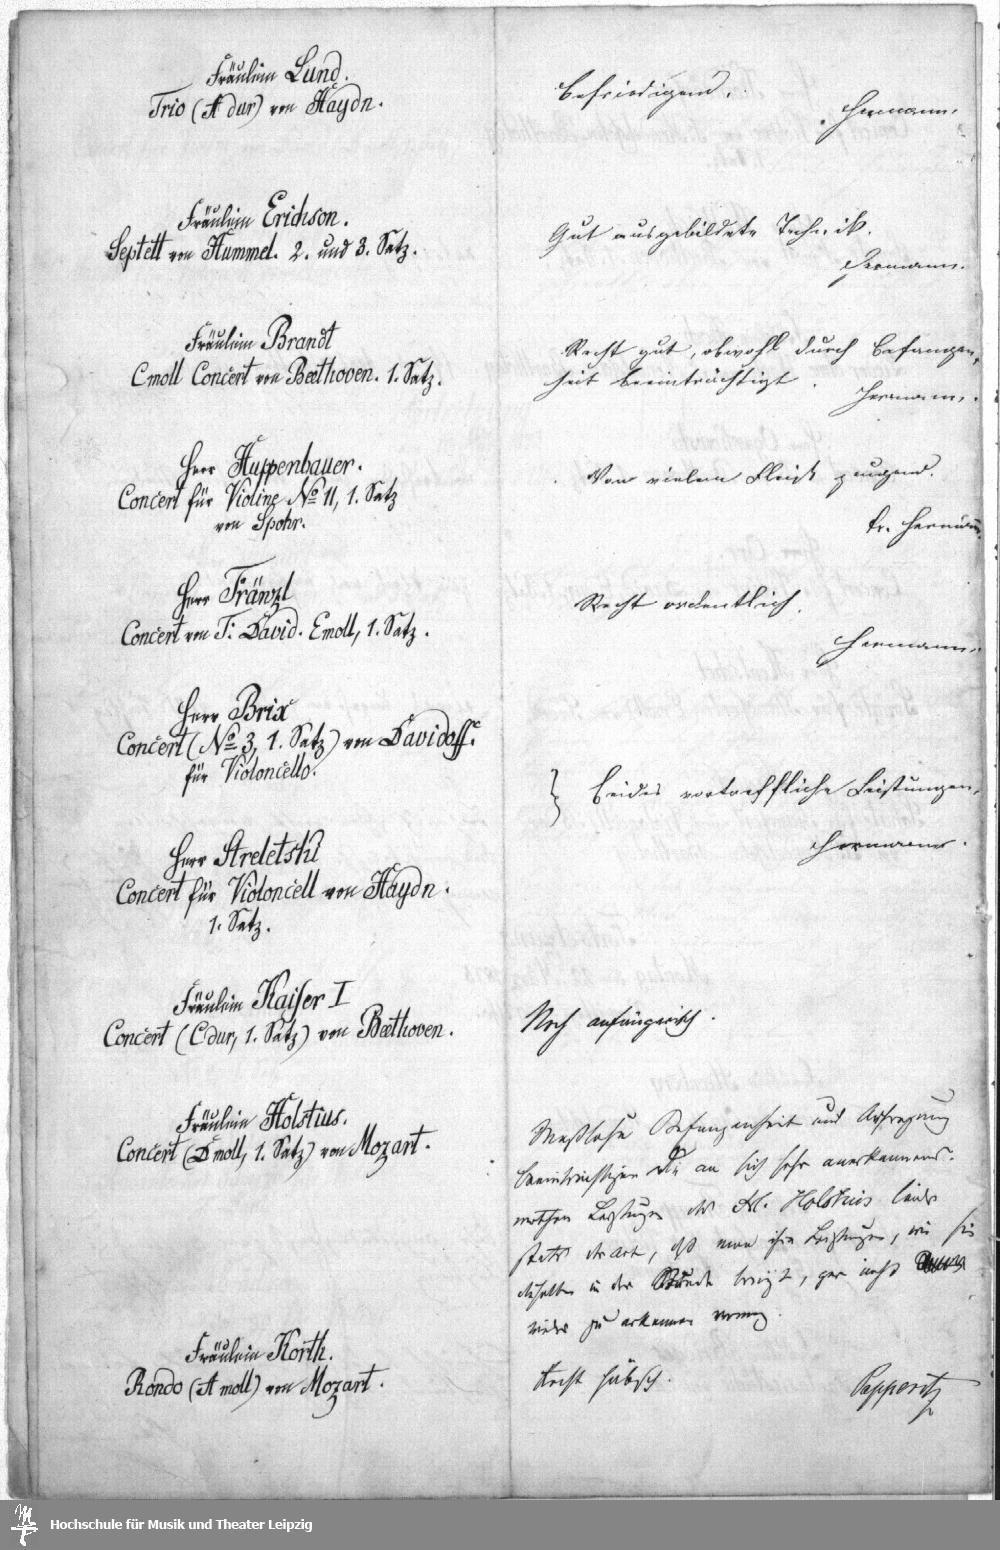 Fräulein Lund.
Trio (A dur) von Haydn.
befriedigend.
Hermann.
Fräulein Erichson.
Septett von Hummel. 2. und 3. Satz.
Gut ausgebildete Technik.
Hermann.
Fräulein Brandt
Cmoll Concert von Beethoven. 1. Satz.
Recht gut, obwohl durch Befangen,
heit beeinträchtigt.
Hermann.
Herr Huppenbauer.
Concert für Violine No 11, 1. Satz
von Spohr.
Von vielem Fleiß zeugend.
Fr. Hermann.
Herr Fränzl
Concert von F: David. Emoll, 1. Satz.
Recht ordentlich.
Hermann.
Herr Brix
Concert (No 3, 1. Satz) von Davidoff.
für Violoncello.
} beides vortreffliche Leistungen.
Hermann.
Herr Streletski
Concert für Violoncell von Haydn.
1. Satz.
Fräulein Kaiser I
Concert (Cdur, 1. Satz) von Beethoven.
Noch anfängerisch.
Fräulein Holstius.
Concert (Dmoll, 1. Satz) von Mozart.
Maßlose Befangenheit und Aufregung
beeinträchtigen die an sich sehr anerkennens-
werthen Leistungen des Frl. Holstius leider
stets derart, daß man ihre Leistungen, wie sie
dieselben in der Stunde bringt, gar nicht
wieder zu erkennen vermag.
Fräulein Korth.
Rondo (A moll) von Mozart.
Recht hübsch.
Papperitz
Hochschule für Musik und Theater Leipzig